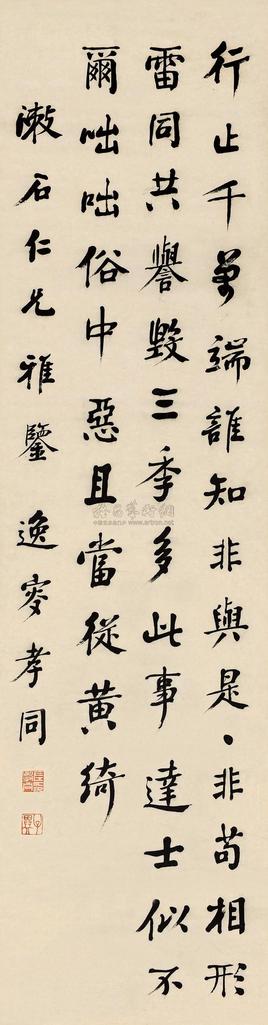 行止千萬端誰知非與是、非苟相形
雷同共譽毀三季多此事達士似不
爾咄咄俗中惡且當從黃綺
漱石仁兄雅鑒 逸叟孝同